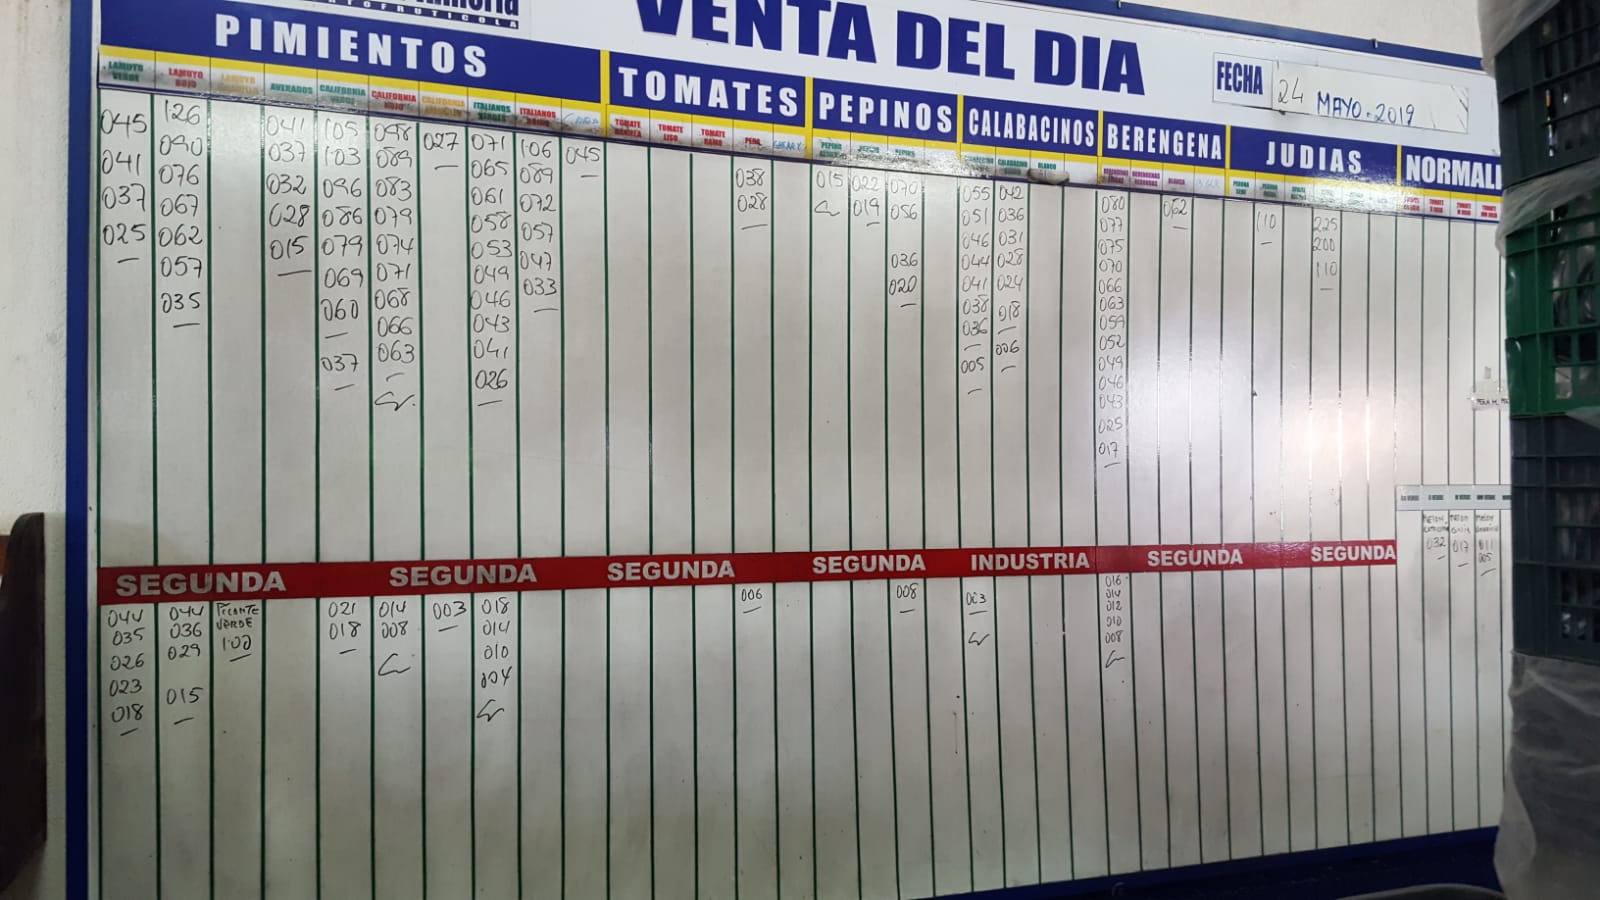 HORTOFRUTICOLA
VENTA DEL DIA
FECHA 24 MAYO-2019
PIMIENTOS
TOMATES
PEPINOS
CALABACINOS
BERENGENA
JUDIAS
LAMUYO VERDE
LAMUYO ROJO
CALIFORNIA VERDE
CALIFORNIA ROJO
ITALIANOS VERDES
ITALIANOS
TOMATE DANIELA
TOMATE LISO
TOMATE RAMO
PERA
045
041
037
025
126
090
076
067
062
057
035
041
037
032
028
015
105
103
096
086
079
069
060
037
098
089
083
079
074
071
068
066
063
027
071
065
061
058
053
049
046
043
041
026
106
089
072
057
047
033
045
038
028
015
022
019
070
056
036
020
055
051
046
044
041
038
036
005
042
036
031
028
024
018
006
080
077
075
070
066
063
059
052
049
046
043
025
017
062
110
225
200
110
SEGUNDA
SEGUNDA
SEGUNDA
SEGUNDA
INDUSTRIA
SEGUNDA
SEGUNDA
044
035
026
023
018
044
036
029
015
PICANTE
VERDE
1.00
021
018
014
008
003
018
014
010
004
006
008
003
016
014
012
010
008
032
017
011
005